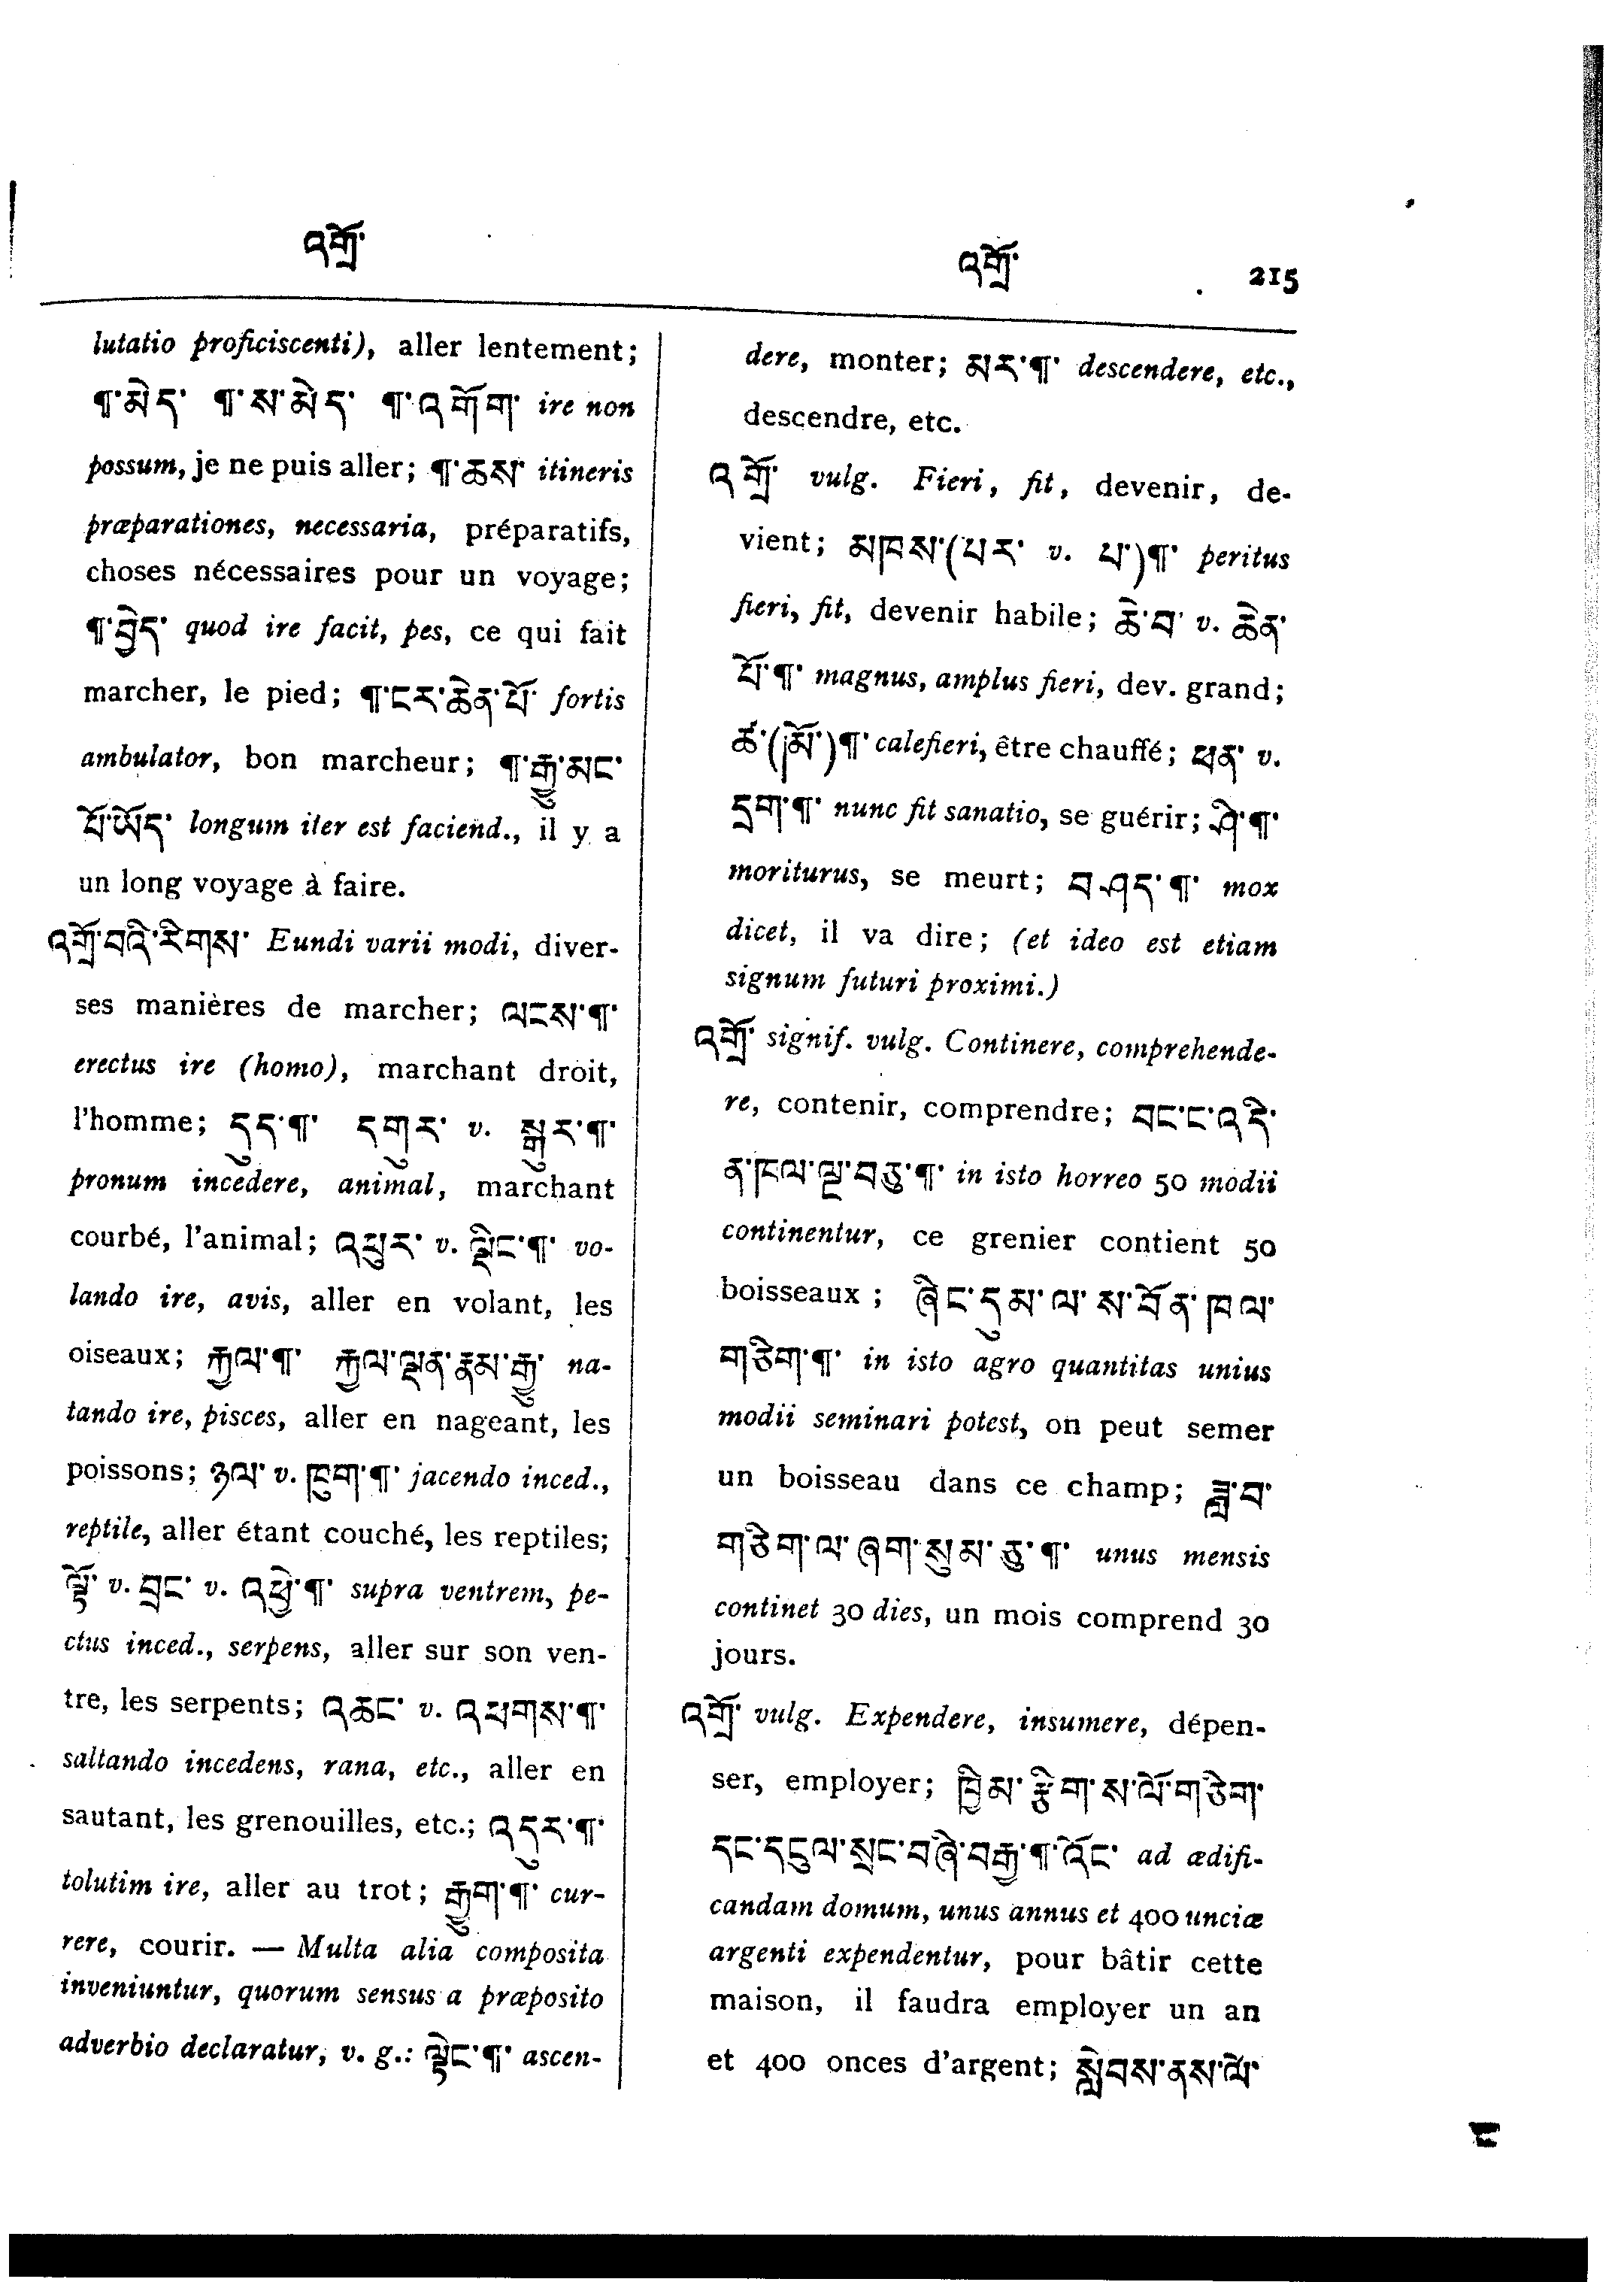 འགྲོ་
འགྲོ་ 215
lutatio proficiscenti), aller lentement;
¶་མེད་ ¶་ས་མེད་ ¶་འགོག་ ire non
possum, je ne puis aller; ¶་ཆས་ itineris
præparationes, necessaria, préparatifs,
choses nécessaires pour un voyage;
¶་བྱེད་ quod ire facit, pes, ce qui fait
marcher, le pied; ¶་ངར་ཆེན་པོ་ fortis
ambulator, bon marcheur; ¶་རྒྱུ་མང་
པོ་ཡོད་ longum iter est faciend., il y a
un long voyage à faire.
འགྲོ་བའི་རིགས་ Eundi varii modi, diver-
ses manières de marcher; ལངས་¶་
erectus ire (homo), marchant droit,
l'homme; དུད་¶་ དགུར་ v. སྒུར་¶་
pronum incedere, animal, marchant
courbé, l'animal; འཕུར་ v. ལྡིང་¶་ vo-
lando ire, avis, aller en volant, les
oiseaux; རྐྱལ་¶་ རྐྱལ་ལྡན་རྣམ་རྒྱུ་ na-
tando ire, pisces, aller en nageant, les
poissons; ཉལ་ v. ཁུག་¶་ jacendo inced.,
reptile, aller étant couché, les reptiles;
ལྟོ་ v. བྲང་ v. འཕྱེ་¶་ supra ventrem, pe-
ctus inced., serpens, aller sur son ven-
tre, les serpents; འཆང་ v. འཕགས་¶་
saltando incedens, rana, etc., aller en
sautant, les grenouilles, etc.; འདུར་¶་
tolutim ire, aller au trot; རྒྱུག་¶་ cur-
rere, courir. — Multa alia composita
inveniuntur, quorum sensus a præposito
adverbio declaratur, v. g.: ལྟེང་¶་ ascen-
dere, monter; མར་¶་ descendere, etc.,
descendre, etc.
འགྲོ་ vulg. Fieri, fit, devenir, de-
vient; མཁས་(པར་ v. པ་)¶་ peritus
fieri, fit, devenir habile; ཆེ་བ་ v. ཆེན་
པོ་¶་ magnus, amplus fieri, dev. grand;
ཚ་(མོ་)¶་ calefieri, être chauffé; ཕན་ v.
དྲག་¶་ nunc fit sanatio, se guérir; ཤི་¶་
moriturus, se meurt; བཤད་¶་ mox
dicet, il va dire; (et ideo est etiam
signum futuri proximi.)
འགྲོ་ signif. vulg. Continere, comprehende-
re, contenir, comprendre; བང་ང་འདི་
ན་ཁལ་ལྔ་བཅུ་¶་ in isto horreo 50 modii
continentur, ce grenier contient 50
boisseaux; ཞིང་དུམ་ལ་ས་བོན་ཁལ་
གཅིག་¶་ in isto agro quantitas unius
modii seminari potest, on peut semer
un boisseau dans ce champ; ཟླ་བ་
གཅིག་ལ་ཞག་སུམ་ཅུ་¶་ unus mensis
continet 30 dies, un mois comprend 30
jours.
འགྲོ་ vulg. Expendere, insumere, dépen-
ser, employer; ཁྱིམ་རྩིག་ས་ལོ་གཅིག་
དང་དངུལ་སྲང་བཞི་བརྒྱ་¶་འོང་ ad ædifi-
candam domum, unus annus et 400 unciæ
argenti expendentur, pour bâtir cette
maison, il faudra employer un an
et 400 onces d'argent; སླེབས་ནས་ལོ་